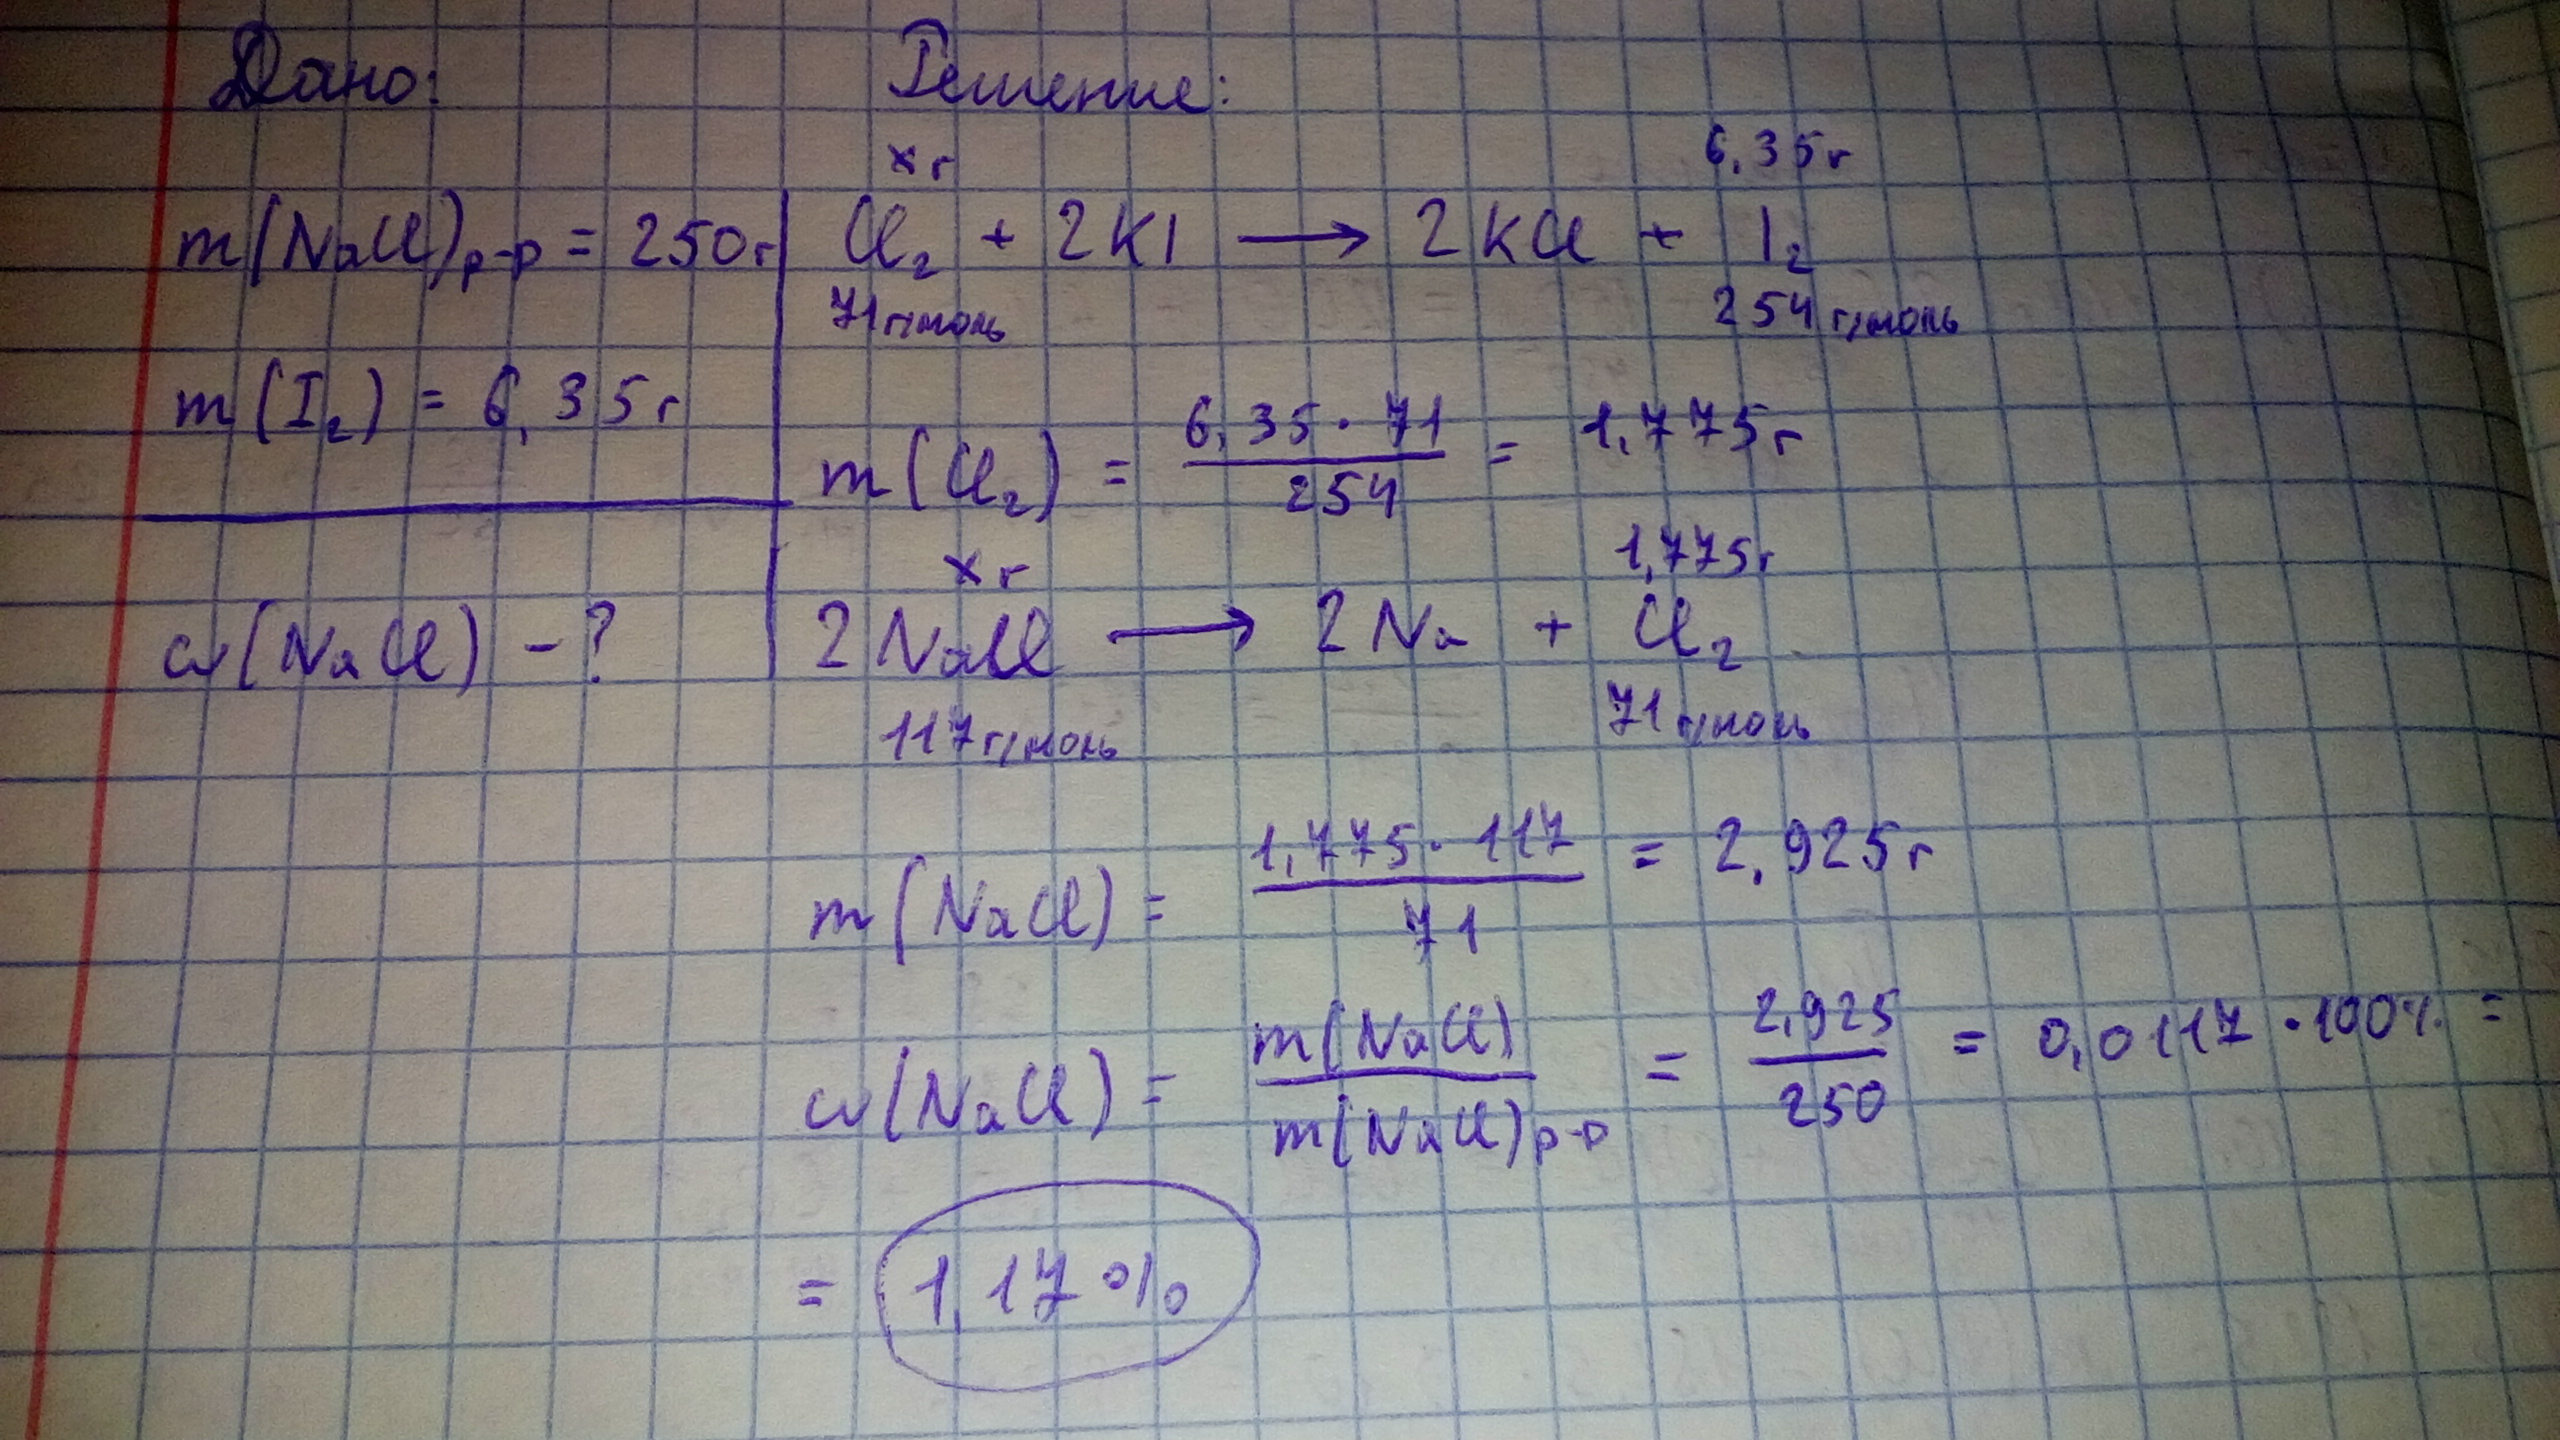 Дано:
m(NaCl)р-р = 250г
m(I₂) = 6,35г
ω(NaCl) - ?
Решение:
xг 6,35г
Cl₂ + 2KI ⟶ 2KCl + I₂
71г/моль 254г/моль
m(Cl₂) = 6,35 · 71 / 254 = 1,775г
xг 1,775г
2NaCl ⟶ 2Na + Cl₂
117г/моль 71г/моль
m(NaCl) = 1,775 · 117 / 71 = 2,925г
ω(NaCl) = m(NaCl) / m(NaCl)р-р = 2,925 / 250 = 0,0117 · 100% =
= 1,17%